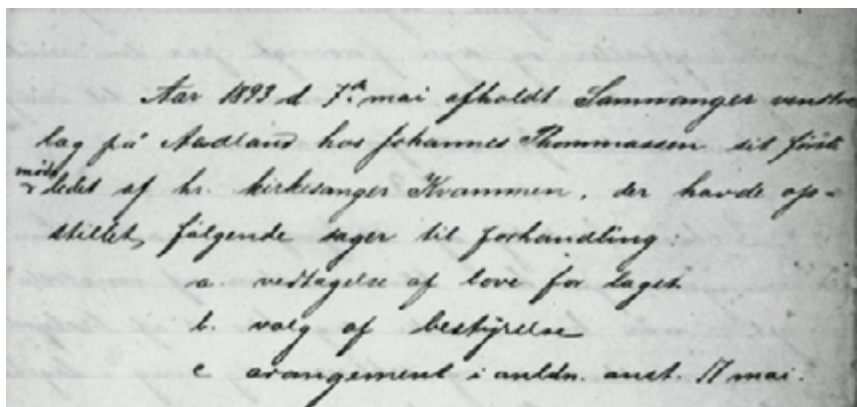 Aar 1893 d 7de mai afholdt Samnanger venstre
lag på Aadland hos Johannes Thommassen sit første
møde
ledet af hr. kirkesanger Kvammen, der havde op=
stillet følgende sager til forhandling:
a. vedtagelse af love for laget
b. valg af bestyrelse
c arangement i anldn. 17 mai.